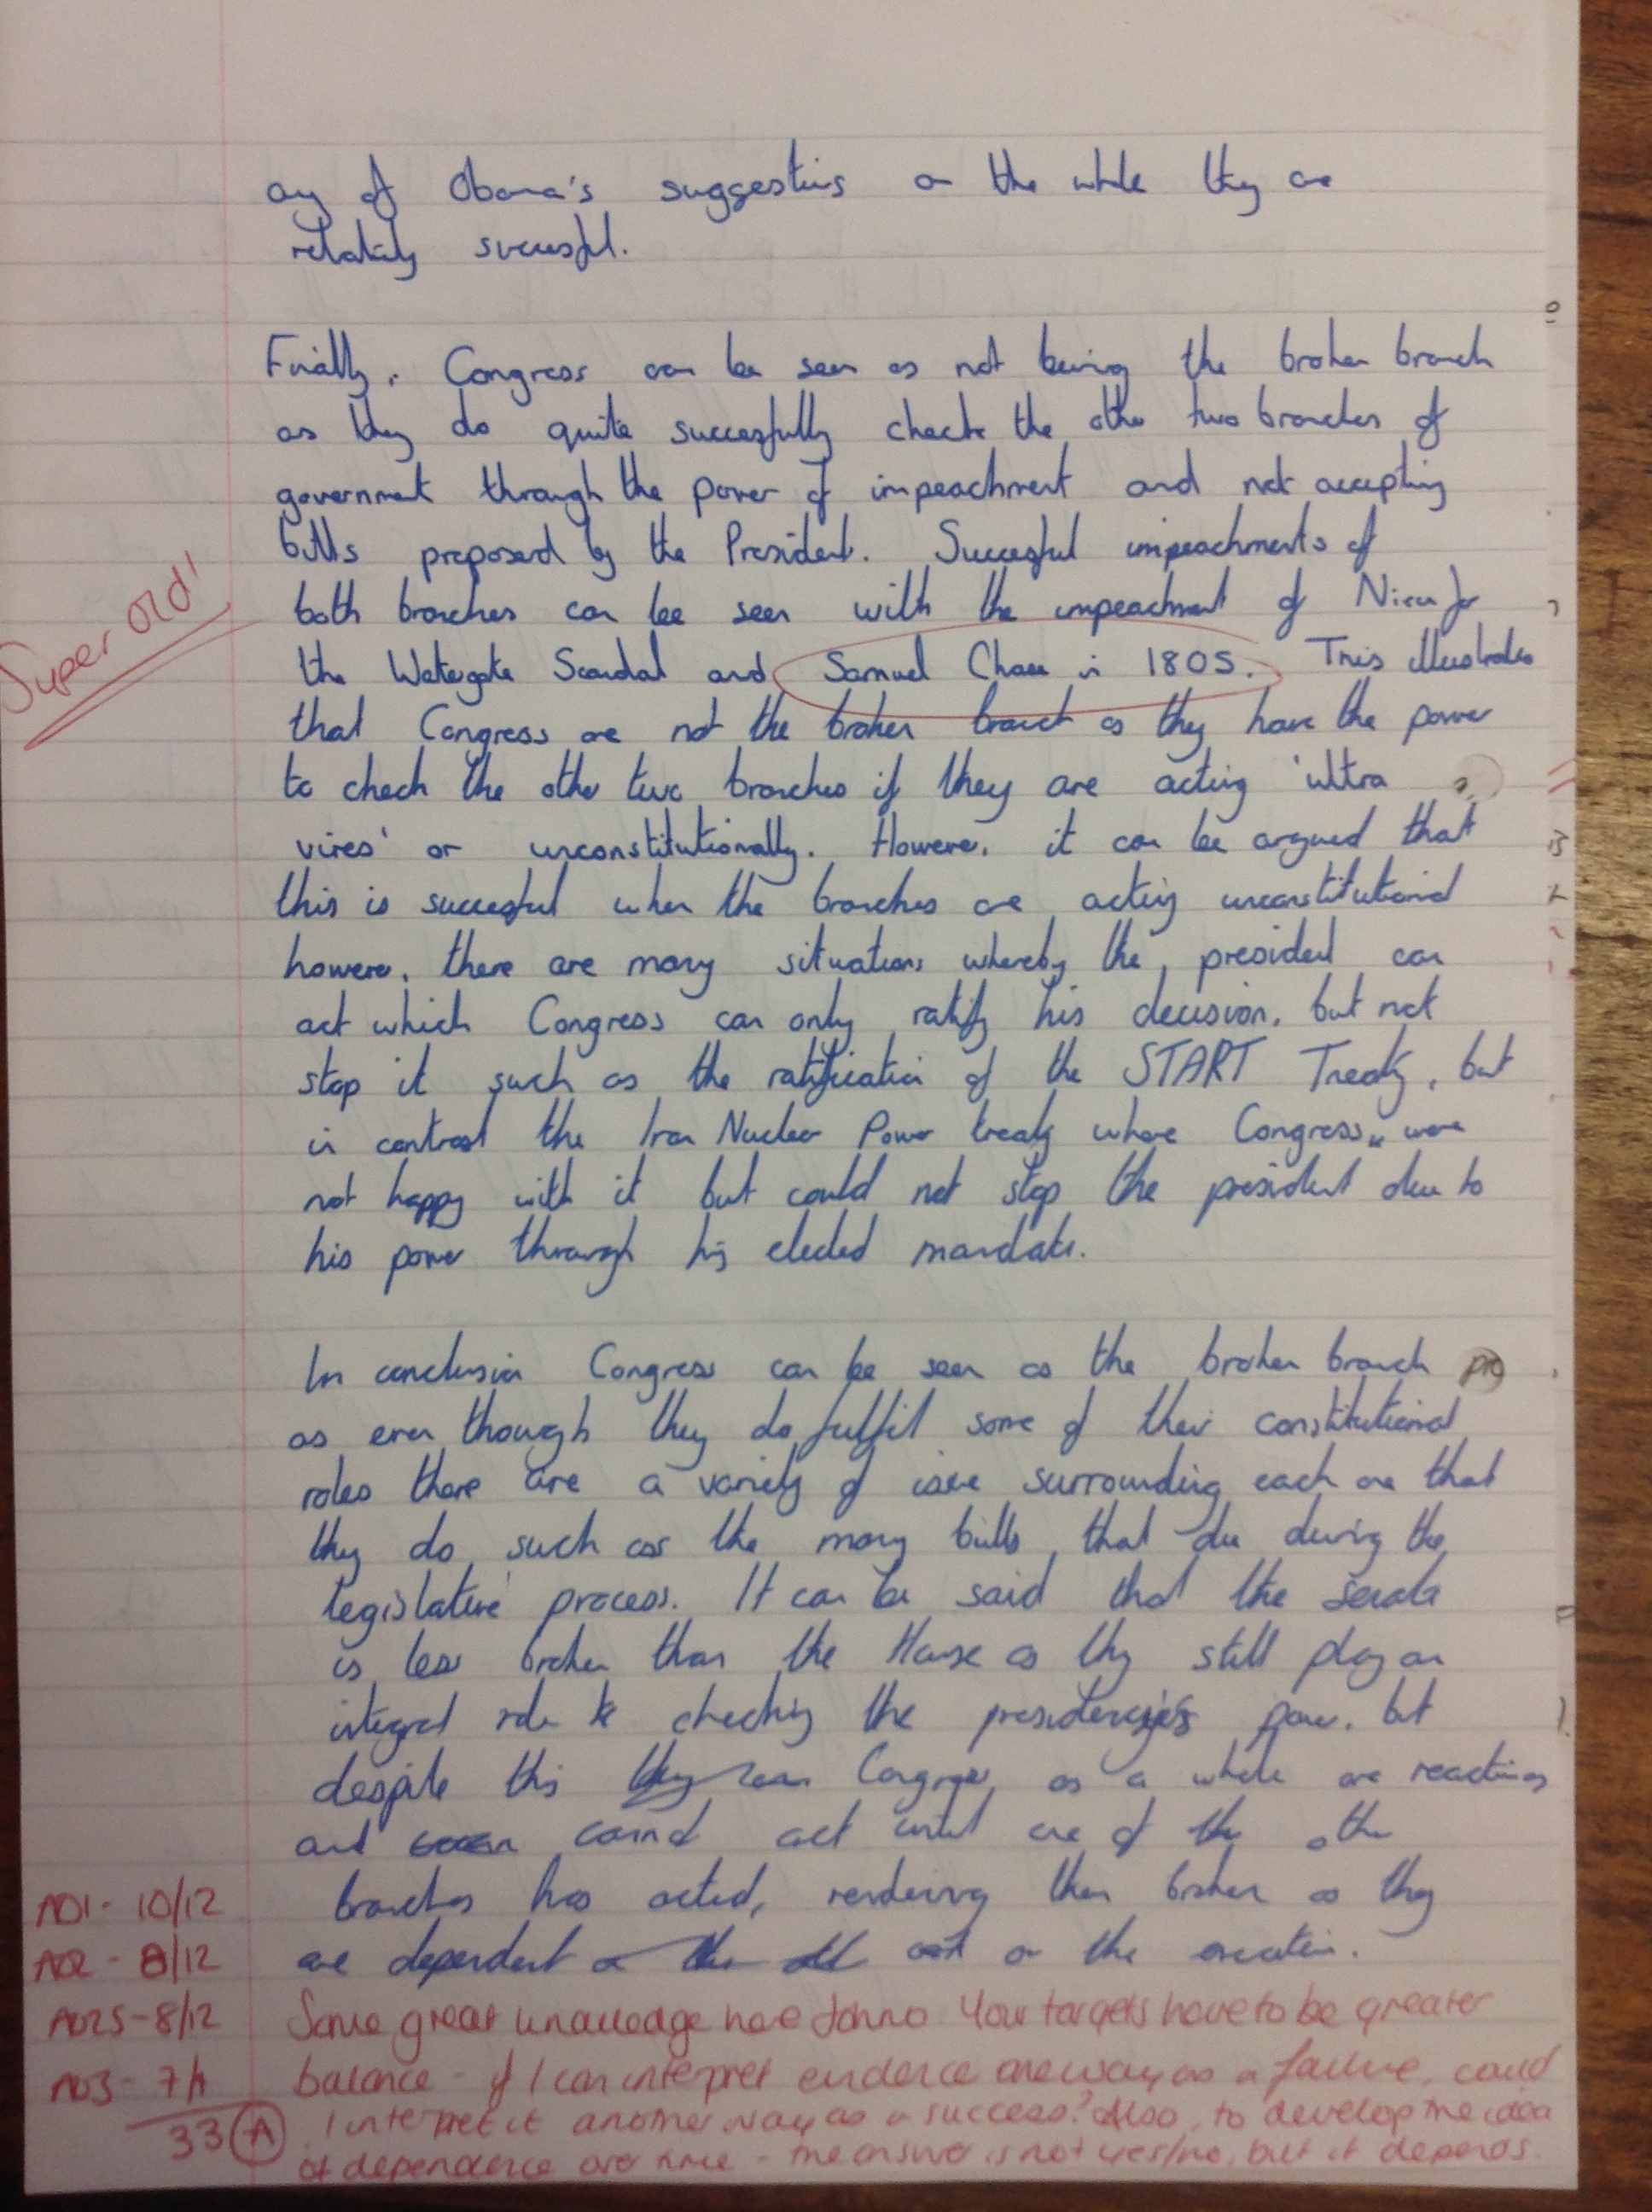 any of Obama's suggestions on the whole they are
relatively succesful.
Finally, Congress can be seen as not being the broken branch
as they do quite succesfully check the other two branches of
government through the power of impeachment and not accepting
bills proposed by the President. Succesful impeachments of
both branches can be seen with the impeachment of Nixon for
Super old!
the Watergate Scandal and Samuel Chase in 1805. This illustrates
that Congress are not the broken branch as they have the power
to check the other two branches if they are acting 'ultra
vires' or unconstitutionally. However, it can be argued that
this is succesful when the branches are acting unconstitutional
however, there are many situations whereby the president can
act which Congress can only ratify his decision, but not
stop it such as the ratification of the START Treaty, but
in contrast the Iran Nuclear Power treaty where Congress were
not happy with it but could not stop the president due to
his power through his elected mandate.
In conclusion Congress can be seen as the broken branch
as even though they do fulfil some of their constitutional
roles there are a variety of issue surrounding each one that
they do such as the many bills that die during the
legislative process. It can be said that the Senate
is less broken than the House as they still play an
integral role to checking the power, but
despite this Congress as a whole are
and cannot act until one of the other
branches has acted, rendering them broken as they
are dependent on the
AO1 - 10/12
AO2 - 8/12
AO2S - 8/12
AO3 - 7/
33 A
Some great knowledge here Your targets have to be greater
balance - if I can interpret evidence one way as a failure, could
I interpret it another way as a success? Also, to develop the idea
of dependence over time - the answer is not yes/no, but it depends.